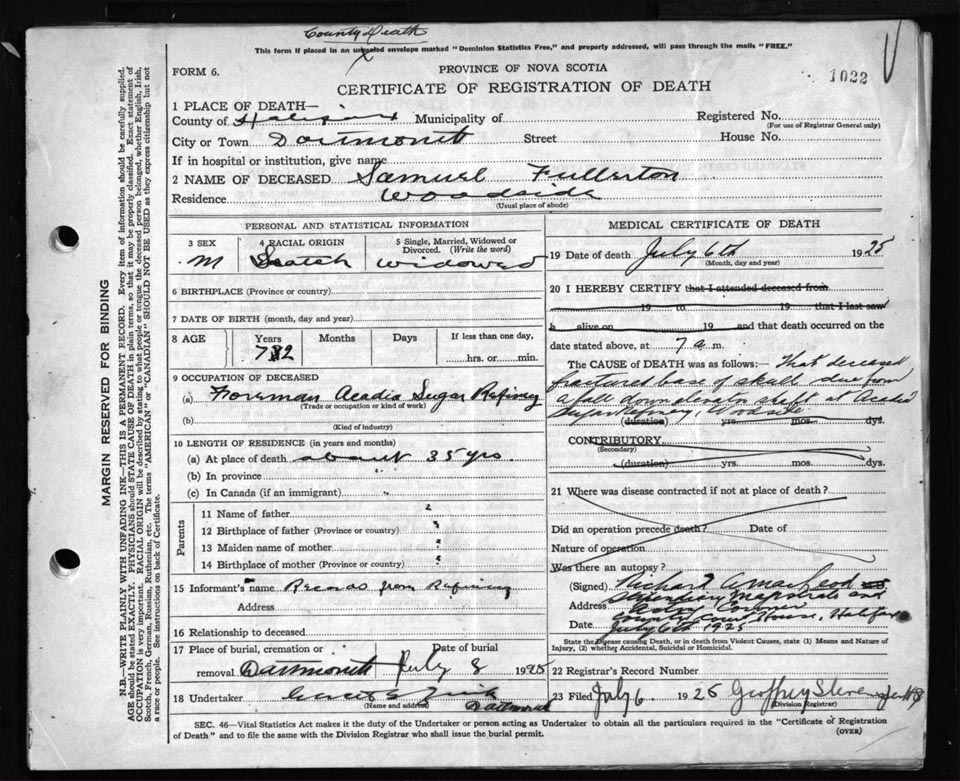 County Death
This form if placed in an unsealed envelope marked "Dominion Statistics Free," and properly addressed, will pass through the mails "FREE."
x
FORM 6.
PROVINCE OF NOVA SCOTIA
1022
CERTIFICATE OF REGISTRATION OF DEATH
1 PLACE OF DEATH—
County of Halifax Municipality of Registered No.
(For use of Registrar General only)
City or Town Dartmouth Street House No.
If in hospital or institution, give name
2 NAME OF DECEASED Samuel Fullerton
Residence Woodside
(Usual place of abode)
PERSONAL AND STATISTICAL INFORMATION
3 SEX 4 RACIAL ORIGIN 5 Single, Married, Widowed or Divorced. (Write the word)
M Scotch widowed
6 BIRTHPLACE (Province or country)
7 DATE OF BIRTH (month, day and year)
8 AGE Years Months Days If less than one day,
72
hrs. or min.
9 OCCUPATION OF DECEASED
(a) Foreman Acadia Sugar Refinery
(Trade or occupation or kind of work)
(b)
(Kind of industry)
10 LENGTH OF RESIDENCE (in years and months)
(a) At place of death about 35 yrs.
(b) In province "
(c) In Canada (if an immigrant)
Parents
11 Name of father ?
12 Birthplace of father (Province or country) ?
13 Maiden name of mother ?
14 Birthplace of mother (Province or country) ?
15 Informant's name Records from Refinery
Address
16 Relationship to deceased
17 Place of burial, cremation or removal Date of burial
Dartmouth July 8 1925
18 Undertaker
(Name and address)
Dartmouth
MEDICAL CERTIFICATE OF DEATH
19 Date of death July 6th 1925
(Month, day and year)
20 I HEREBY CERTIFY that I attended deceased from
19 to 19 that I last saw
h alive on 19 and that death occurred on the
date stated above, at 7 a m.
The CAUSE OF DEATH was as follows:— That deceased
fractured base of skull due from
a fall down elevator shaft at Acadia
Sugar Refinery, Woodside
(duration) yrs. mos. dys.
CONTRIBUTORY
(Secondary)
(duration) yrs. mos. dys.
21 Where was disease contracted if not at place of death?
Did an operation precede death? Date of
Nature of operation
Was there an autopsy?
(Signed) Richard A MacLeod
Stipendiary Magistrate and
Address Coroner
County Court House, Halifax
Date July 6th 1925
State the Disease causing Death, or in death from Violent Causes, state (1) Means and Nature of Injury, (2) whether Accidental, Suicidal or Homicidal.
22 Registrar's Record Number
23 Filed July 6 1925 Geoffrey Stevens
(Division Registrar)
SEC. 46—Vital Statistics Act makes it the duty of the Undertaker or person acting as Undertaker to obtain all the particulars required in the "Certificate of Registration
of Death" and to file the same with the Division Registrar who shall issue the burial permit.
(OVER)
MARGIN RESERVED FOR BINDING
N.B.—WRITE PLAINLY WITH UNFADING INK—THIS IS A PERMANENT RECORD. Every item of information should be carefully supplied.
AGE should be stated EXACTLY. PHYSICIANS should STATE CAUSE OF DEATH in plain terms, so that it may be properly classified. Exact statement of
OCCUPATION is very important. RACIAL ORIGIN will be described by stating to what people or tongue the deceased person belonged, whether English, Irish,
Scotch, French, German, Russian, Ruthenian, etc. The terms "AMERICAN" or "CANADIAN" SHOULD NOT BE USED as they express citizenship but not
a race or people. See instructions on back of Certificate.